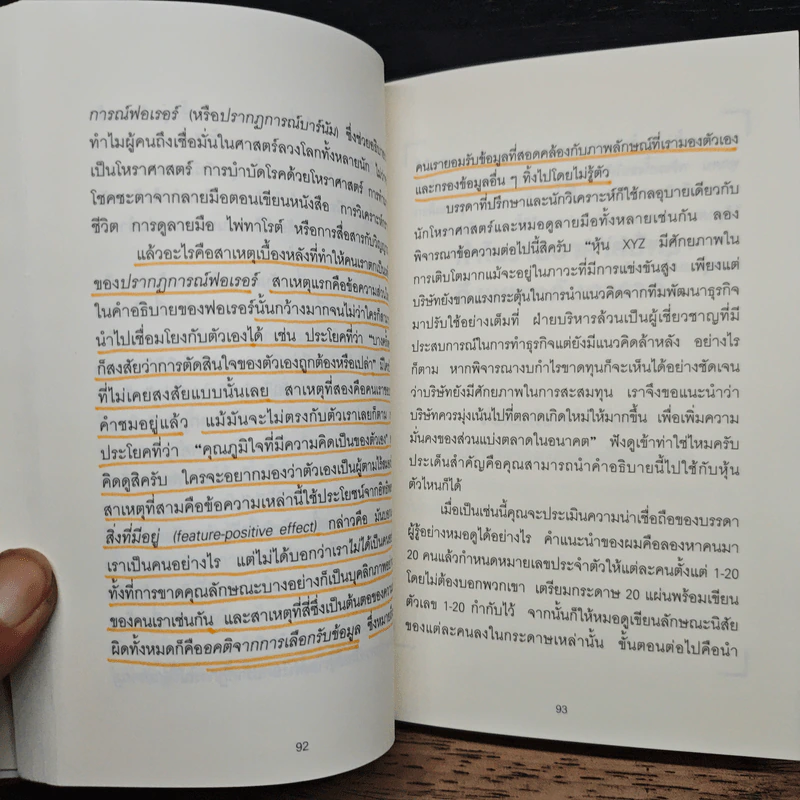 การณ์ฟอเรอร์ (หรือปรากฏการณ์บาร์นัม) ซึ่งช่วยอธิบาย
ทำไมผู้คนถึงเชื่อมั่นในศาสตร์ลวงโลกทั้งหลายนัก ไม่ว่า
เป็นโหราศาสตร์ การบำบัดโรคด้วยโหราศาสตร์ การทำนาย
โชคชะตาจากลายมือตอนเขียนหนังสือ การวิเคราะห์
ชีวิต การดูลายมือ ไพ่ทาโรต์ หรือการสื่อสารกับวิญญาณ
แล้วอะไรคือสาเหตุเบื้องหลังที่ทำให้คนเราตกเป็น
ของปรากฏการณ์ฟอเรอร์ สาเหตุแรกคือข้อความส่วนใหญ่
ในคำอธิบายของฟอเรอร์นั้นกว้างมากจนไม่ว่าใครก็สามารถ
นำไปเชื่อมโยงกับตัวเองได้ เช่น ประโยคที่ว่า "บางครั้งคุณ
ก็สงสัยว่าการตัดสินใจของตัวเองถูกต้องหรือเปล่า" มีใคร
ที่ไม่เคยสงสัยแบบนั้นเลย สาเหตุที่สองคือคนเราชอบ
คำชมอยู่แล้ว แม้มันจะไม่ตรงกับตัวเราเลยก็ตาม
ประโยคที่ว่า "คุณภูมิใจที่มีความคิดเป็นของตัวเอง"
คิดดูสิครับ ใครจะอยากมองว่าตัวเองเป็นผู้ตามไร้สมอง
สาเหตุที่สามคือข้อความเหล่านี้ใช้ประโยชน์จากอิทธิพล
สิ่งที่มีอยู่ (feature-positive effect) กล่าวคือ มันบอกว่า
เราเป็นคนอย่างไร แต่ไม่ได้บอกว่าเราไม่ได้เป็นคน
ทั้งที่การขาดคุณลักษณะบางอย่างก็เป็นบุคลิกภาพ
ของคนเราเช่นกัน และสาเหตุที่สี่ซึ่งเป็นต้นตอของความ
ผิดทั้งหมดก็คืออคติจากการเลือกรับข้อมูล ซึ่งหมายถึง
92
คนเรายอมรับข้อมูลที่สอดคล้องกับภาพลักษณ์ที่เรามองตัวเอง
และกรองข้อมูลอื่น ๆ ทิ้งไปโดยไม่รู้ตัว
บรรดาที่ปรึกษาและนักวิเคราะห์ก็ใช้กลอุบายเดียวกับ
นักโหราศาสตร์และหมอดูลายมือทั้งหลายเช่นกัน ลอง
พิจารณาข้อความต่อไปนี้สิครับ "หุ้น XYZ มีศักยภาพใน
การเติบโตมากแม้จะอยู่ในภาวะที่มีการแข่งขันสูง เพียงแต่
บริษัทยังขาดแรงกระตุ้นในการนำแนวคิดจากทีมพัฒนาธุรกิจ
มาปรับใช้อย่างเต็มที่ ฝ่ายบริหารล้วนเป็นผู้เชี่ยวชาญที่มี
ประสบการณ์ในการทำธุรกิจแต่ยังมีแนวคิดล้าหลัง อย่างไร
ก็ตาม หากพิจารณางบกำไรขาดทุนก็จะเห็นได้อย่างชัดเจน
ว่าบริษัทยังมีศักยภาพในการสะสมทุน เราจึงขอแนะนำว่า
บริษัทควรมุ่งเน้นไปที่ตลาดเกิดใหม่ให้มากขึ้น เพื่อเพิ่มความ
มั่นคงของส่วนแบ่งตลาดในอนาคต" ฟังดูเข้าท่าใช่ไหมครับ
ประเด็นสำคัญคือคุณสามารถนำคำอธิบายนี้ไปใช้กับหุ้น
ตัวไหนก็ได้
เมื่อเป็นเช่นนี้คุณจะประเมินความน่าเชื่อถือของบรรดา
ผู้รู้อย่างหมอดูได้อย่างไร คำแนะนำของผมคือลองหาคนมา
20 คนแล้วกำหนดหมายเลขประจำตัวให้แต่ละคนตั้งแต่ 1-20
โดยไม่ต้องบอกพวกเขา เตรียมกระดาษ 20 แผ่นพร้อมเขียน
ตัวเลข 1-20 กำกับไว้ จากนั้นก็ให้หมอดูเขียนลักษณะนิสัย
ของแต่ละคนลงในกระดาษเหล่านั้น ขั้นตอนต่อไปคือนำ
93